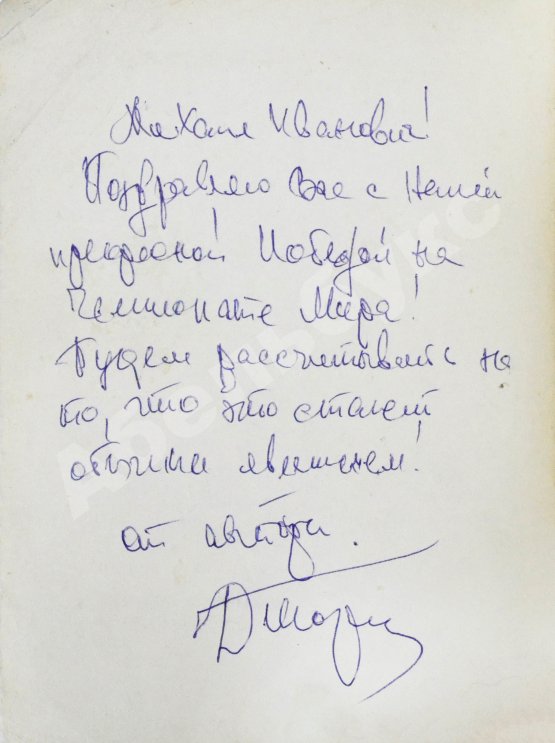 Михаил Иванович!
Поздравляю Вас с Нашей
прекрасной Победой на
Чемпионате Мира!
Будем рассчитывать на
то, что это станет
обычным явлением!
от автора.